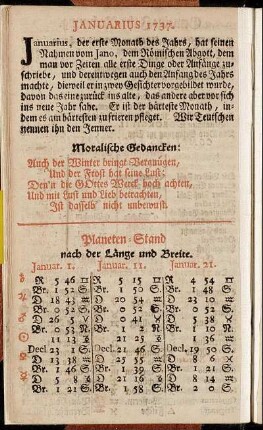 JANUARIUS 1737.
Januarius, der erste Monath des Jahrs, hat seinen
Nahmen vom Jano, dem Römischen Abgott, dem
man vor Zeiten alle erste Dinge oder Anfänge zu-
schriebe, und derentwegen auch den Anfang des Jahrs
machte, dieweil er in zwey Gesichter vorgebildet wurde,
davon das eine zurück ins alte, das andere aber vor sich
ins neue Jahr sahe. Er ist der härteste Monath, in-
dem es am härtesten zu frieren pfleget. Wir Teutschen
nennen ihn den Jenner.
Moralische Gedancken:
Auch der Winter bringt Vergnügen,
Und der Frost hat seine Lust;
Den'n die GOttes Werck hoch achten,
Und mit Lust und Lieb betrachten,
Ist dasselb' nicht unbewust.
Planeten-Stand
nach der Länge und Breite.
Januar. 1. Januar. 11. Januar. 21.
R 5 46 ♊ R 5 15 ♊ R 4 54 ♊
Br. 1 52 S. Br. 1 50 S. Br. 1
D 18 43 ♒ D 20 54 ♒ D 23 10 ♒
Br. 0 52 S. Br. 0 52 S. Br. 0
D 26 5 D 0 41 D 5 38
Br. 0 53 N. Br. 1 2 N. Br. 1 10 N.
11 13 21 25 1 36
Decl. 23 1 S. Decl. 21 46 S. Decl. 19 50 S.
D 13 38 D 25 55 D 8 6
Br. 1 46 S. Br. 1 39 S. Br. 1
D 5 8 D 21 16 D 8 14
Br. 1 58 S. Br. 2 Br. 2 0 S.